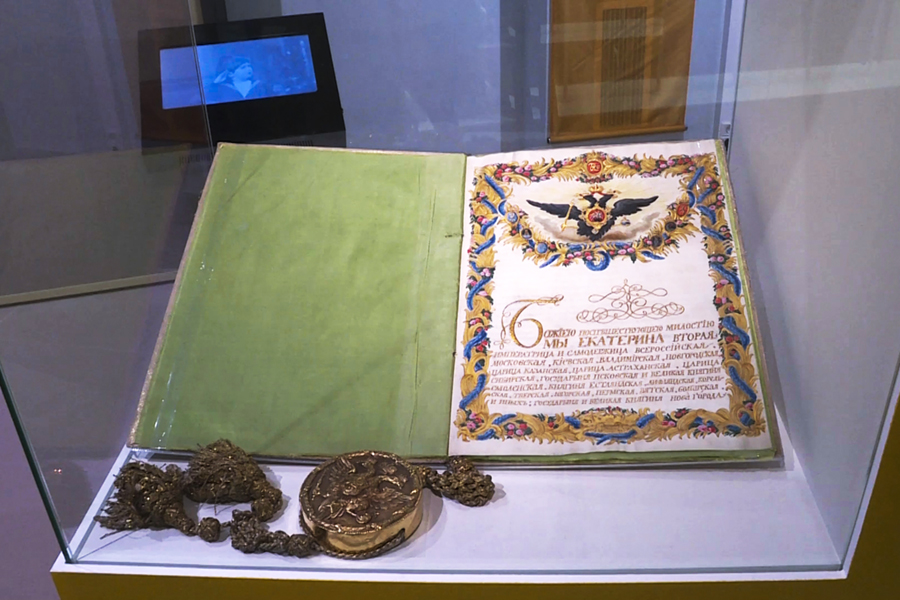 Божіею поспѣшествующею милостію
МЫ ЕКАТЕРИНА ВТОРАЯ,
ИМПЕРАТРИЦА И САМОДЕРЖИЦА ВСЕРОССІЙСКАЯ,
МОСКОВСКАЯ, КІЕВСКАЯ, ВЛАДИМІРСКАЯ, НОВГОРОДСКАЯ,
ЦАРИЦА КАЗАНСКАЯ, ЦАРИЦА АСТРАХАНСКАЯ, ЦАРИЦА
СИБИРСКАЯ, ГОСУДАРЫНЯ ПСКОВСКАЯ И ВЕЛИКАЯ КНЯГИНЯ
СМОЛЕНСКАЯ, КНЯГИНЯ ЭСТЛЯНДСКАЯ, ЛИФЛЯНДСКАЯ, КОРЕЛЬ-
СКАЯ, ТВЕРСКАЯ, ЮГОРСКАЯ, ПЕРМСКАЯ, ВЯТСКАЯ, БОЛГАРСКАЯ
И ИНЫХЪ; ГОСУДАРЫНЯ И ВЕЛИКАЯ КНЯГИНЯ НОВА ГОРОДА